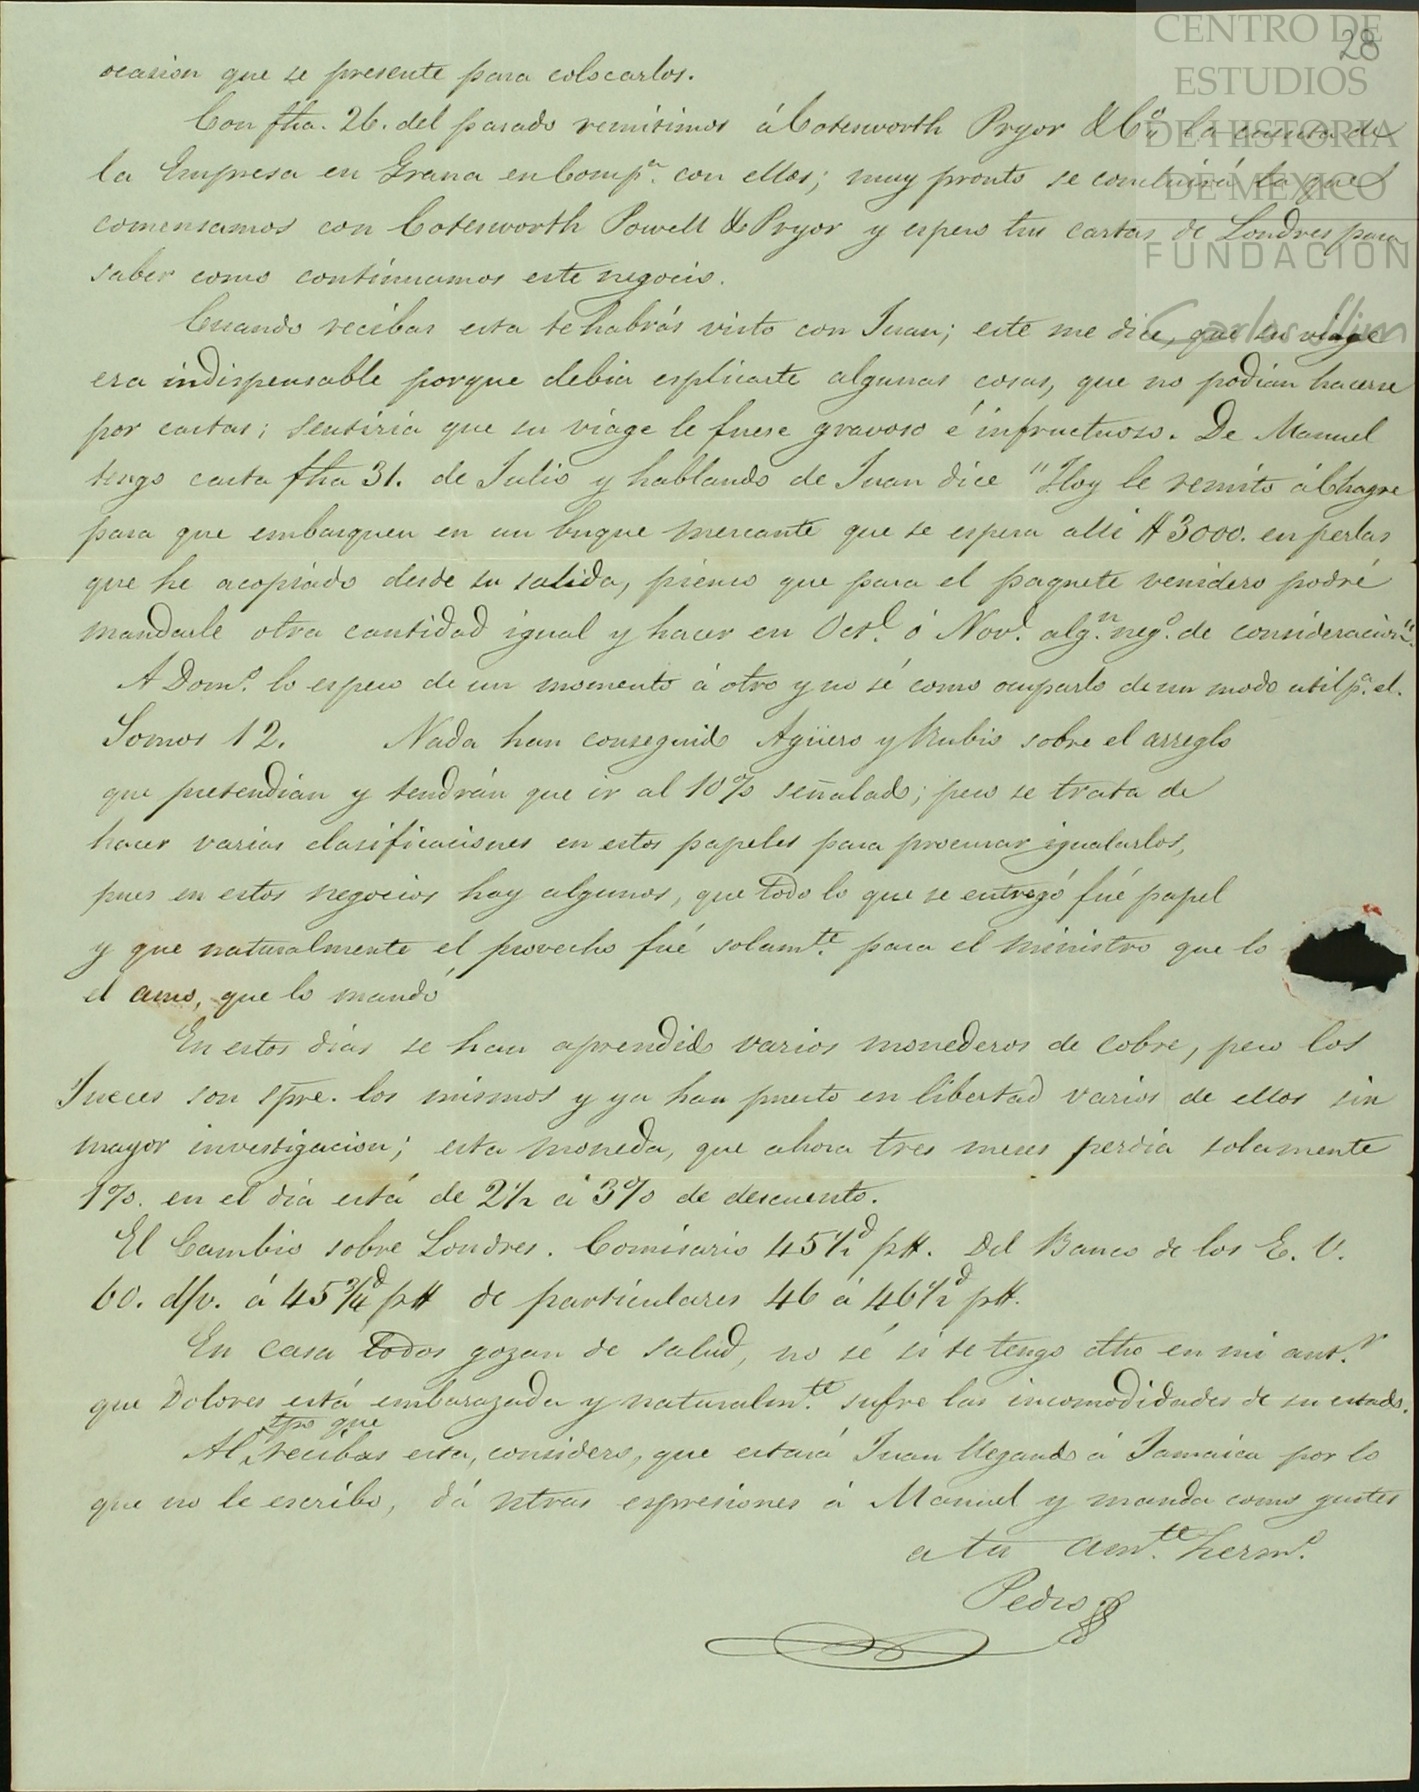 CENTRO DE
ESTUDIOS
DE HISTORIA
DE MÉXICO
FUNDACIÓN
Carlos Slim
28
ocasion que se presente para colocarlos.
Con fha. 26. del pasado remitimos á Cotesworth Pryor & Cª la cuenta de
la Empresa en Grana en Compª. con ellos; muy pronto se concluirá la que
comensamos con Cotesworth Powell & Pryor y espero tus cartas de Lóndres para
saber como continuamos este negocio.
Cuando recibas esta te habrás visto con Juan; este me dice, que su viage
era indispensable porque debia esplicarte algunas cosas, que no podian hacerse
por cartas; sentiria que su viage le fuese gravoso é infructuoso. De Manuel
tengo carta fha 31. de Julio y hablando de Juan dice "Hoy le remito á Chagre
para que embarquen en un buque mercante que se espera alli $ 3000. en perlas
que he acopiado desde su salida, pienso que para el paquete venidero podré
mandarle otra cantidad igual y hacer en Octe. ó Nove. algn. nego. de consideracion".
A Domo. lo espero de un momento á otro y no sé como ocuparlo de un modo util pª. el.
Somos 12. Nada han conseguido Agüero y Rubio sobre el arreglo
que pretendian y tendrán que ir al 10% señalado; pero se trata de
hacer varias clasificaciones en estos papeles para procurar igualarlos,
pues en estos negocios hay algunos, que todo lo que se entregó fué papel
y que naturalmente el provecho fué solamte. para el ministro que lo
el amo, que lo mandó
En estos dias se han aprendido varios monederos de cobre, pero los
Jueces son spre. los mismos y ya han puesto en libertad varios de ellos sin
mayor investigacion; esta moneda, que ahora tres meses perdia solamente
1%. en el dia está de 2½ á 3% de descuento.
El Cambio sobre Londres. Comisario 45½d p$. Del Banco de los E. U.
60. d/v. á 45¾d p$ de particulares 46 á 46½d p$.
En casa todos gozan de salud, no sé si te tengo dho en mi antr.
que Dolores está embarazada y naturalmte. sufre las incomodidades de su estado.
tpo que
Al recibas esta, considero, que estará Juan llegando á Jamaica por lo
que no le escribo, dá ntras espresiones á Manuel y manda como gustes
a tu amte. hermo.
Pedro